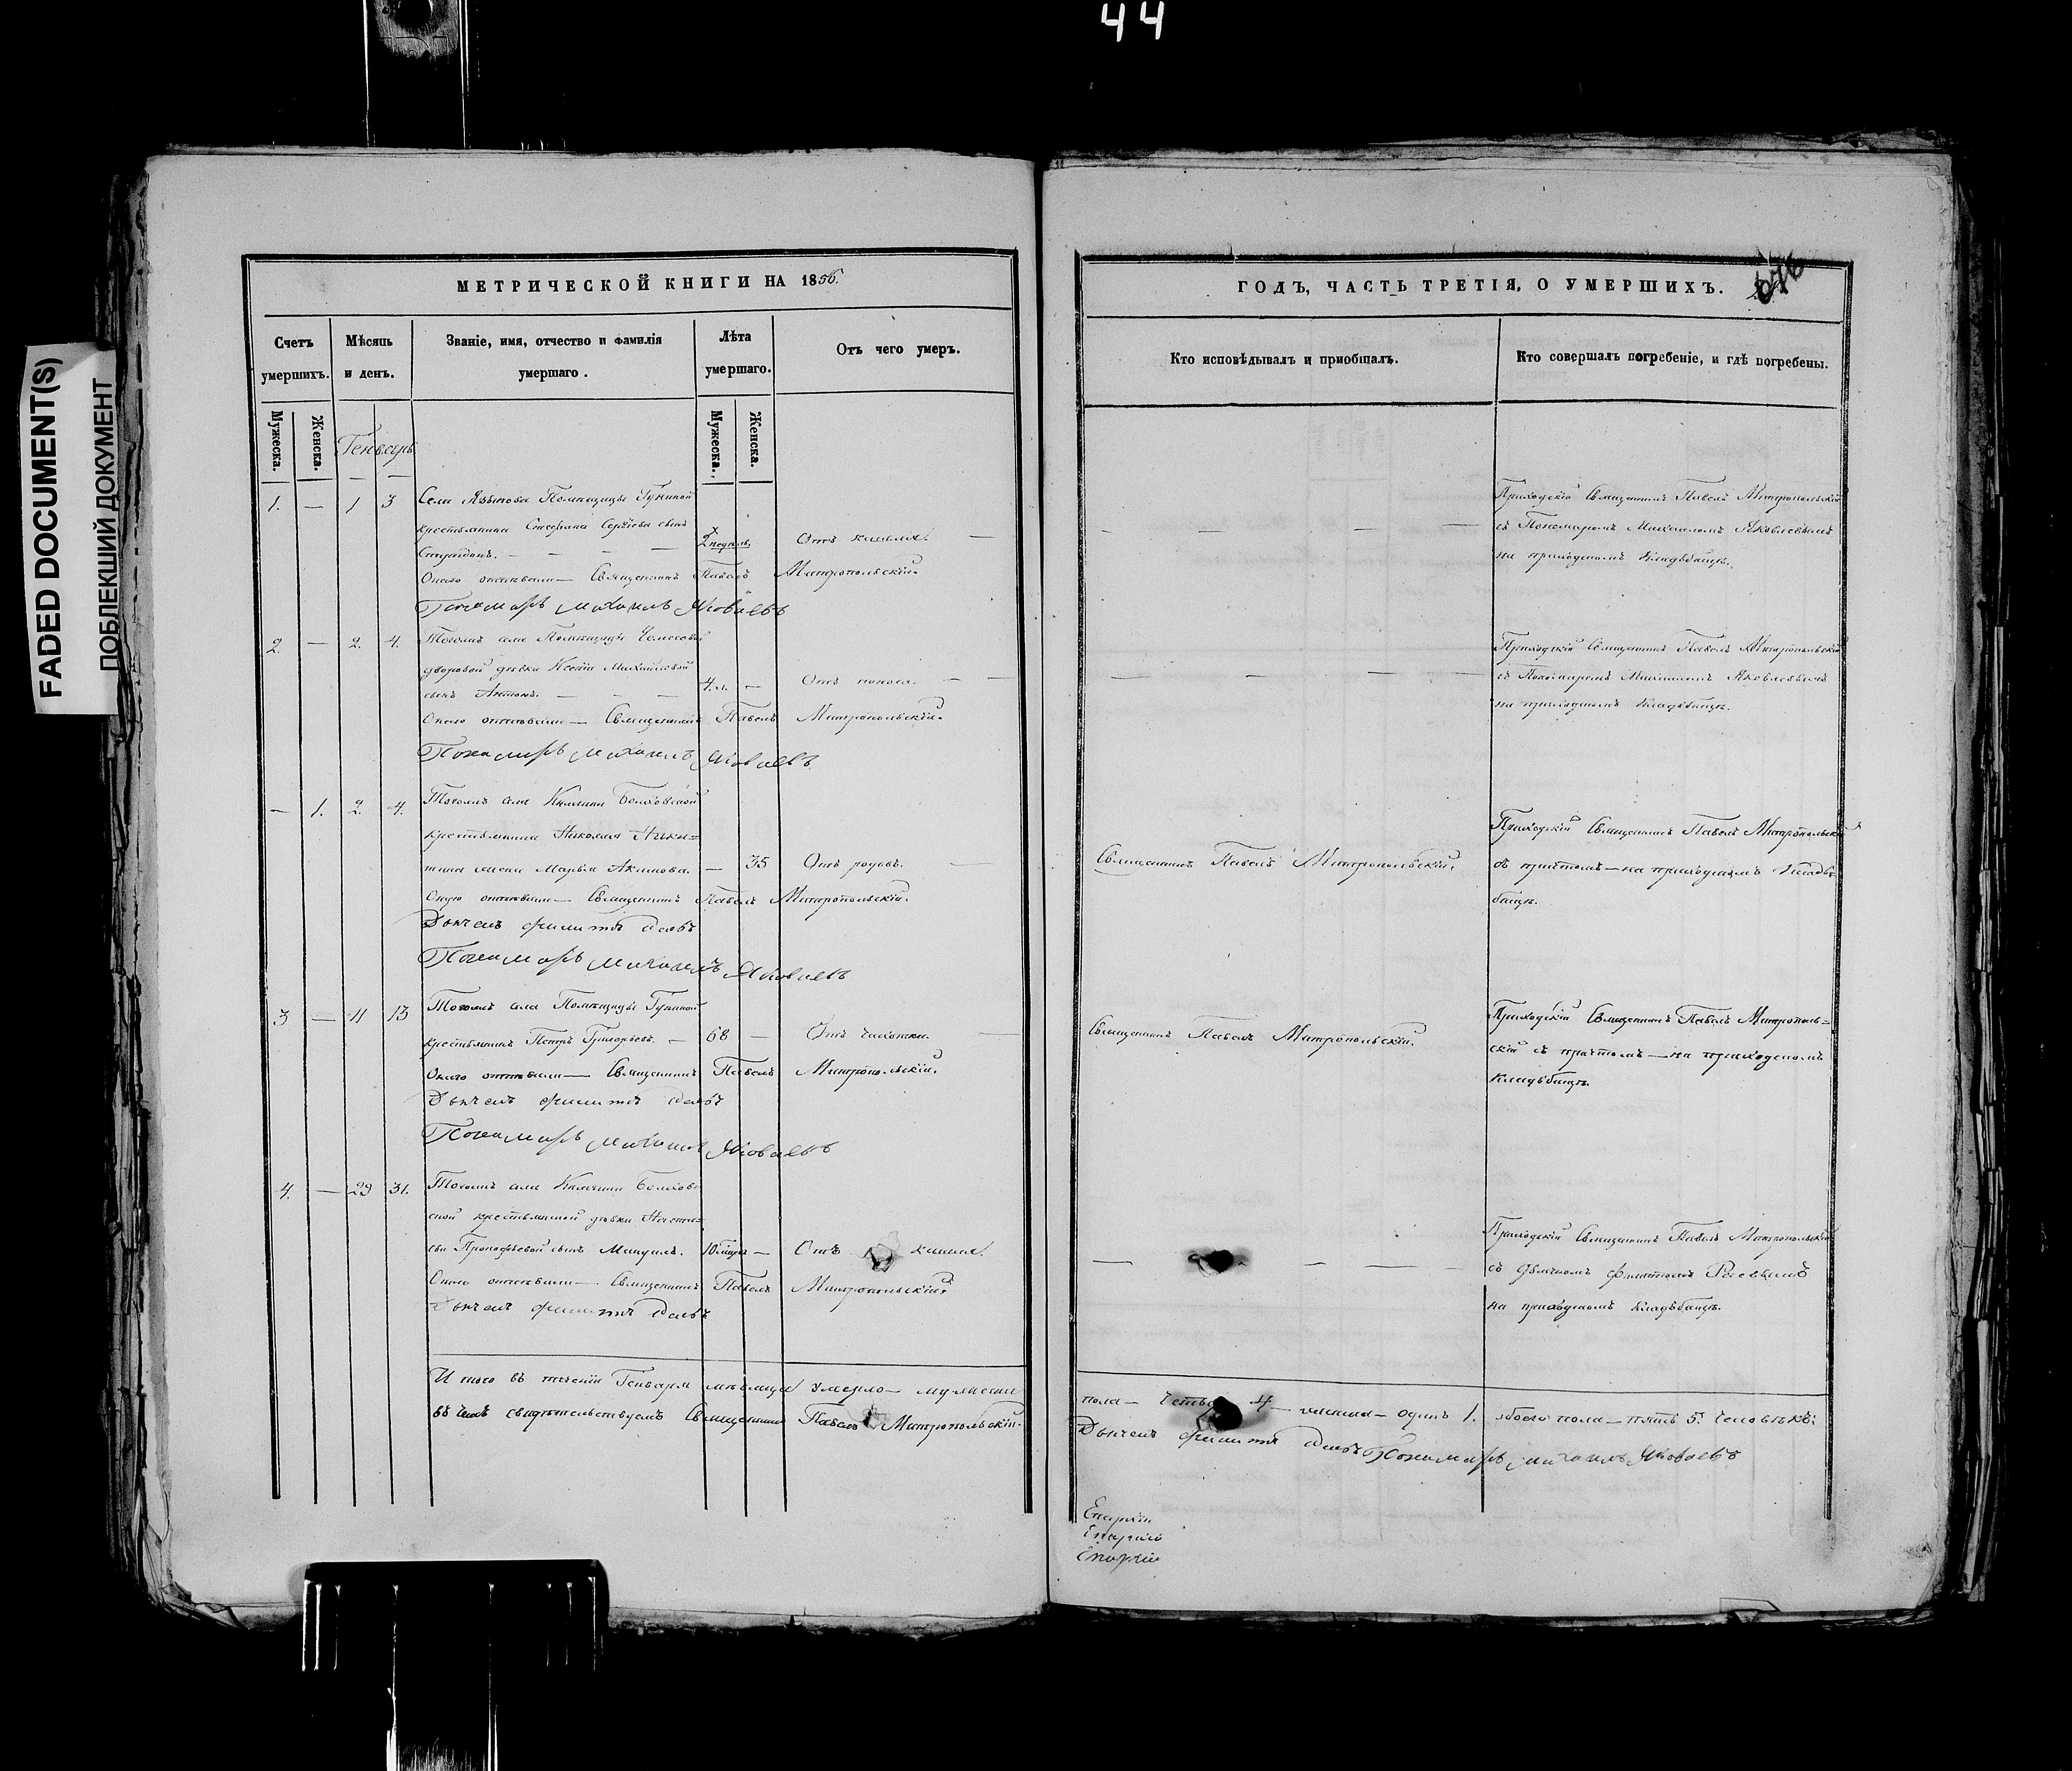 44
FADED DOCUMENT(S)
ПОБЛЕКШИЙ ДОКУМЕНТ
МЕТРИЧЕСКОЙ КНИГИ НА 1856.
Счетъ умершихъ.
Мѣсяцъ и день.
Званіе, имя, отчество и фамилія умершаго.
Лѣта умершаго.
Отъ чего умеръ.
Мужеска.
Женска.
Мужеска.
Женска.
Генварь
1. — 1 3 Села Языкова Помѣщицы
крестьянина Стефана Сергіева сынъ
Спиридонъ. — — — 2 недѣль. Отъ кашля. —
Онаго отпѣвали — Священникъ Павелъ Митропольскій.
Пономарь Михаилъ Яковлевъ
2. — 2. 4. Тогожъ села Помѣщицы
дворовой дѣвки Ксеніи Михайловой
сынъ Антонъ. — — — 4. л. — Отъ поноса. — —
Онаго отпѣвали — Священникъ Павелъ Митропольскій.
Пономарь Михаилъ Яковлевъ
— 1. 2. 4. Тогожъ села Княгини Болховской
крестьянина Николая Ники=
тина жена Марья Акимова. — 35 Отъ родовъ. —
Оную отпѣвали — Священникъ Павелъ Митропольскій.
Дьячекъ Филиппъ
Пономарь Михаилъ Яковлевъ
3 — 11 13 Тогожъ села Помѣщицы
крестьянинъ Петръ Григорьевъ. — 68 — Отъ чахотки. —
Онаго отпѣвали — Священникъ Павелъ Митропольскій.
Дьячекъ Филиппъ
Пономарь Михаилъ Яковлевъ
4. — 29 31. Тогожъ села Княгини Болхов=
ской крестьянской дѣвки Настась=
сьи Прокофьевой сынъ Мануилъ. — Отъ кашля.
Онаго отпѣвали — Священникъ Павелъ Митропольскій.
Дьячекъ Филиппъ
Итого въ теченіи Генваря мѣсяца умерло — мужеска
въ чемъ свидѣтельствуемъ Священникъ Павелъ Митропольскій.
ГОДЪ, ЧАСТЬ ТРЕТІЯ, О УМЕРШИХЪ.
Кто исповѣдывалъ и приобщалъ.
Кто совершалъ погребеніе, и гдѣ погребены.
Приходскій Священникъ Павелъ Митропольскій
съ Пономаремъ Михаиломъ Яковлевымъ
на приходскомъ кладбищѣ.
Приходскій Священникъ Павелъ Митропольскій
съ Пономаремъ Михаиломъ Яковлевымъ
на приходскомъ кладбищѣ.
Священникъ Павелъ Митропольскій.
Приходскій Священникъ Павелъ Митропольскій
съ причтомъ — на приходскомъ кладъ=
бищѣ.
Священникъ Павелъ Митропольскій.
Приходскій Священникъ Павелъ Митрополь=
скій съ причтомъ — на приходскомъ
кладъбищѣ.
Приходскій Священникъ Павелъ Митропольскій
съ Дьячкомъ Филиппомъ
на приходскомъ кладъбищѣ.
пола — 4 — женска — одинъ 1. обоего пола — пять 5. человѣкъ:
Дьячекъ Филиппъ Пономарь Михаилъ Яковлевъ
Епархіи
Епархіи
Епархіи